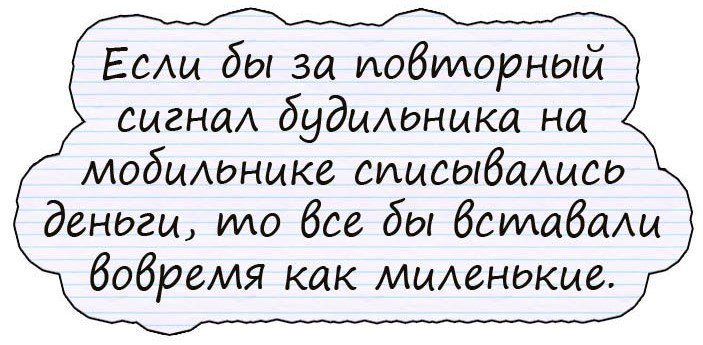 Если бы за повторный
сигнал будильника на
мобильнике списывались
деньги, то все бы вставали
вовремя как миленькие.